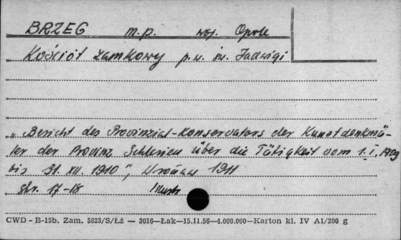 BRZEG m.p. woj. Opole
Kościół zamkowy p.w. św. Jadwigi
„Bericht des Provinzial-Konservators der Kunstdenkmä-
ler der Provinz Schlesien über die Tätigkeit vom 1.I.1909
bis 31.XII.1910", Wrocław 1911
str. 17-18
CWD - B-15b. Zam. 5823/S/Łż — 3016—Łak—15.11.56—4.000.000—Karton kl. IV A1/200 g